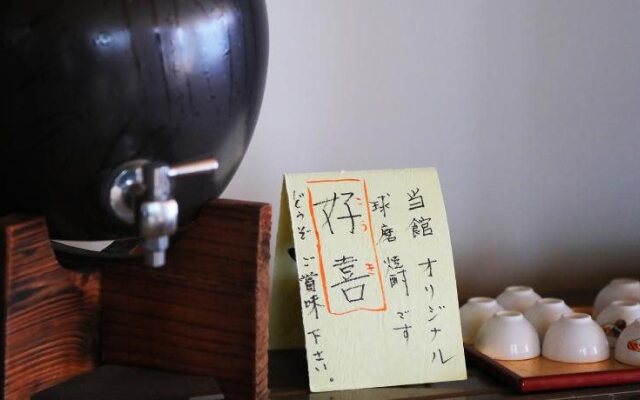 当館 オリジナル
球磨焼酎です
好喜
こうき
どうぞ ご賞味下さい。